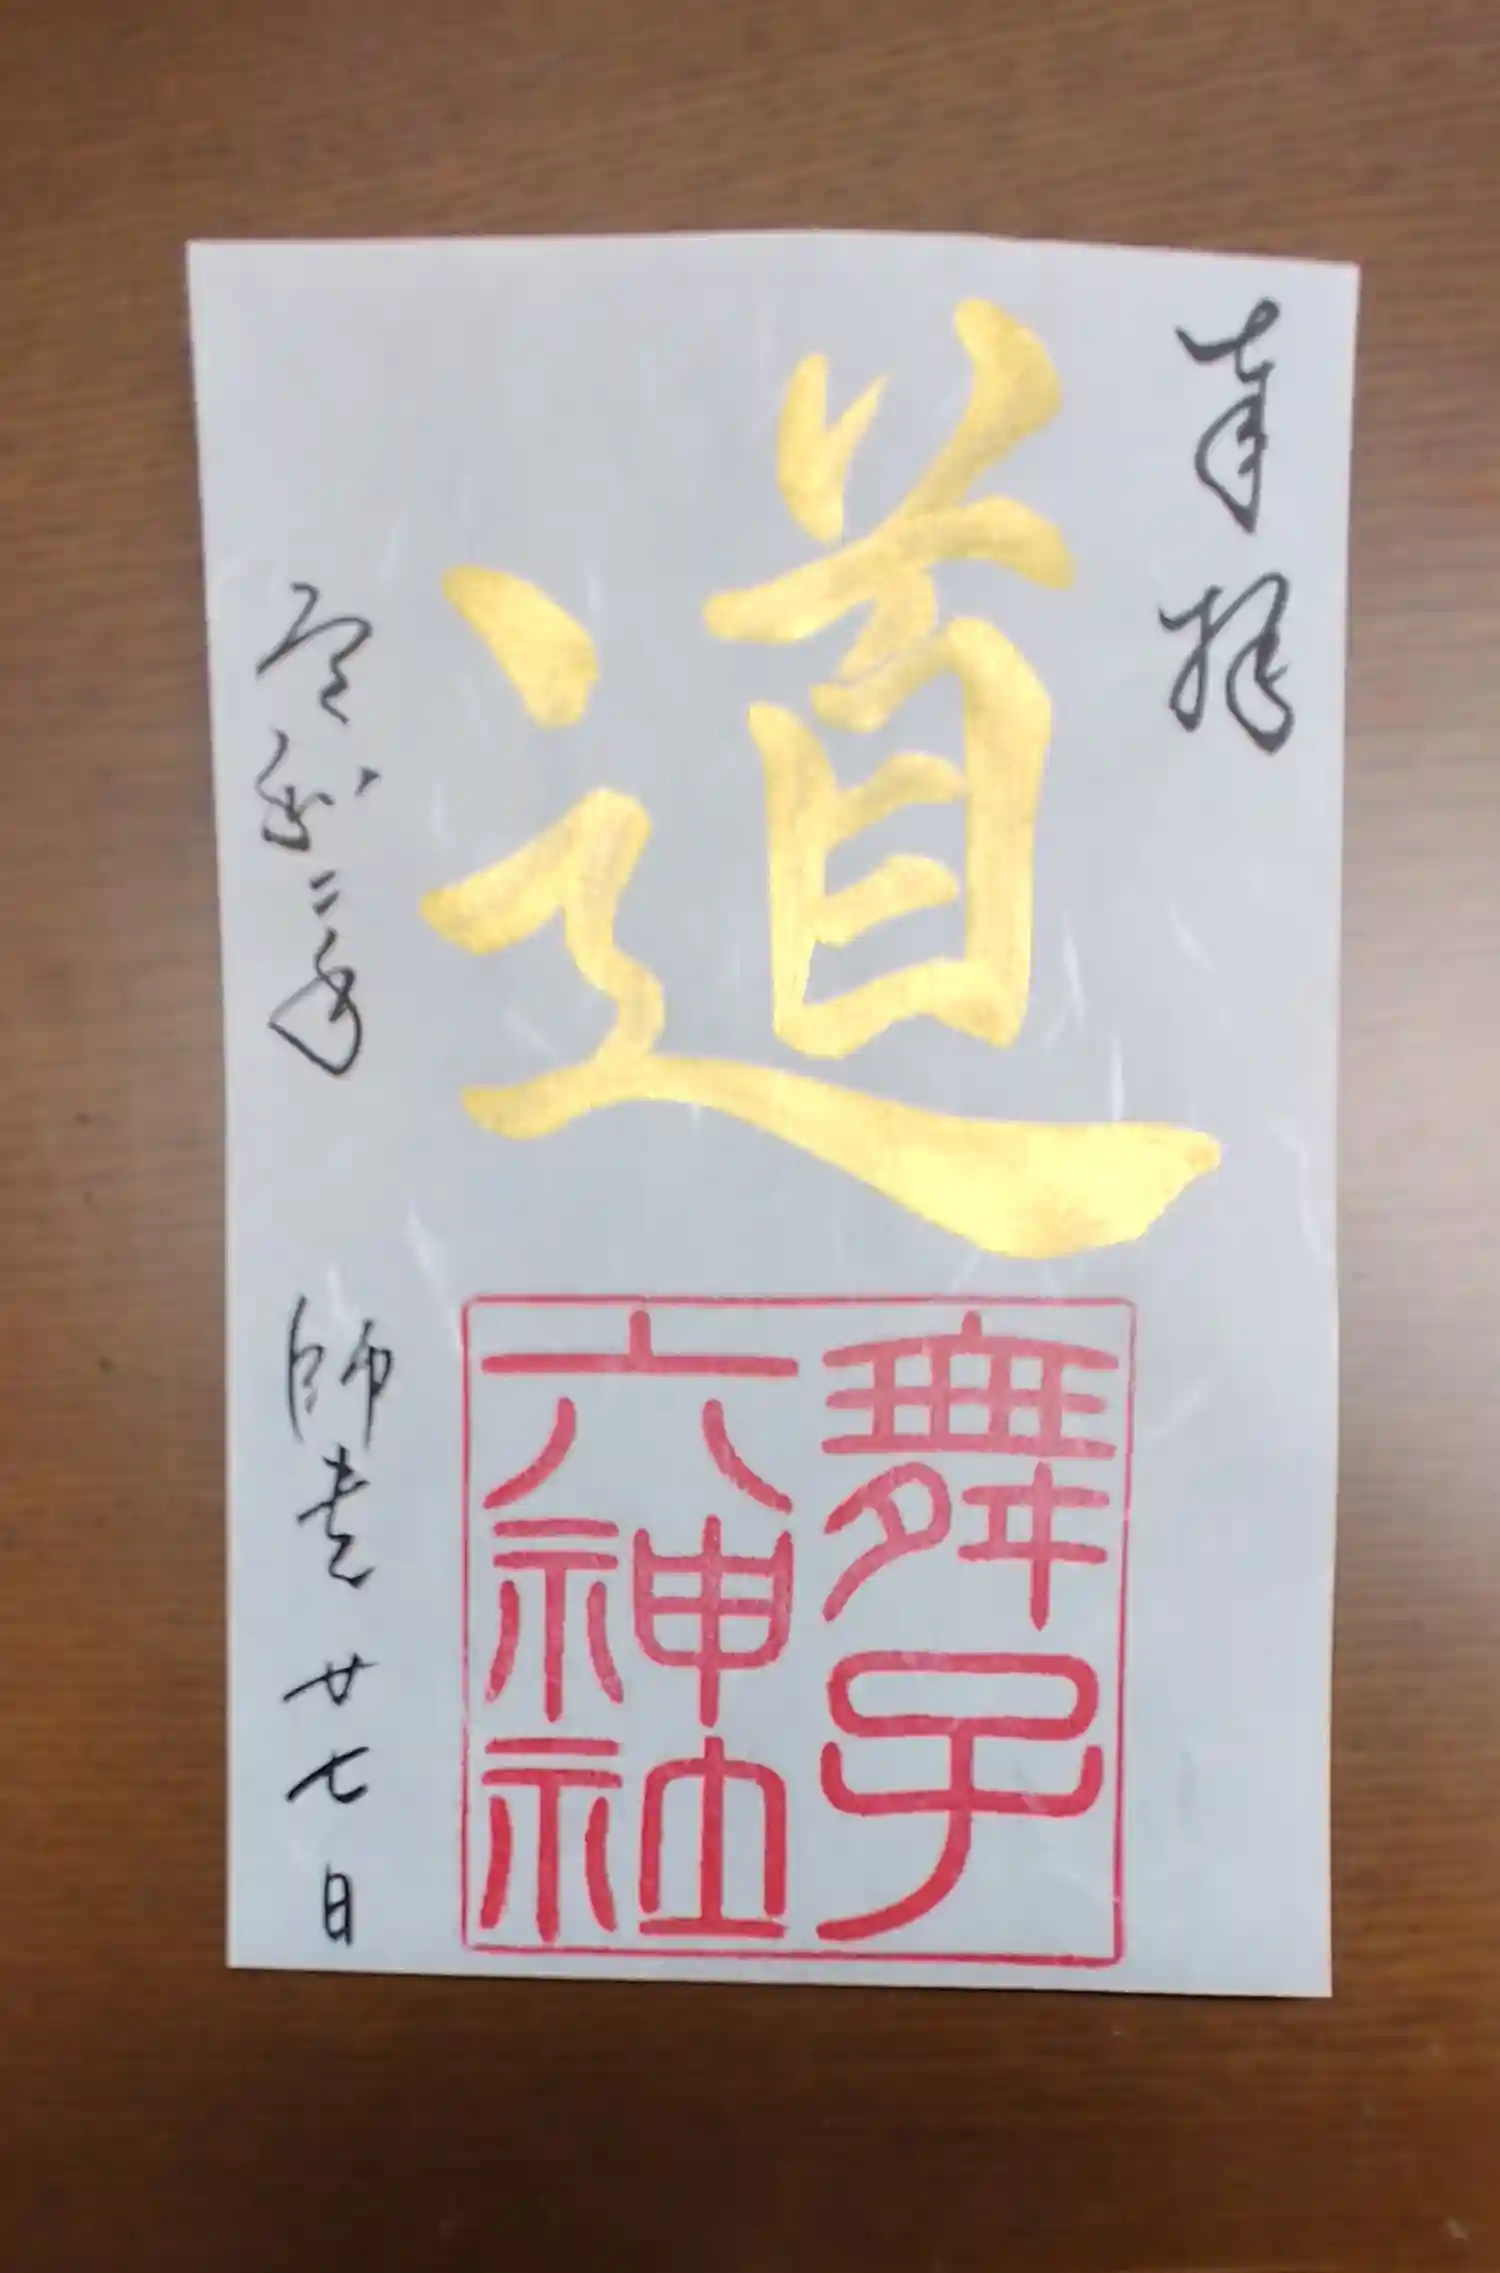 奉拝
道
舞子
六神社
令和二年
師走廿七日